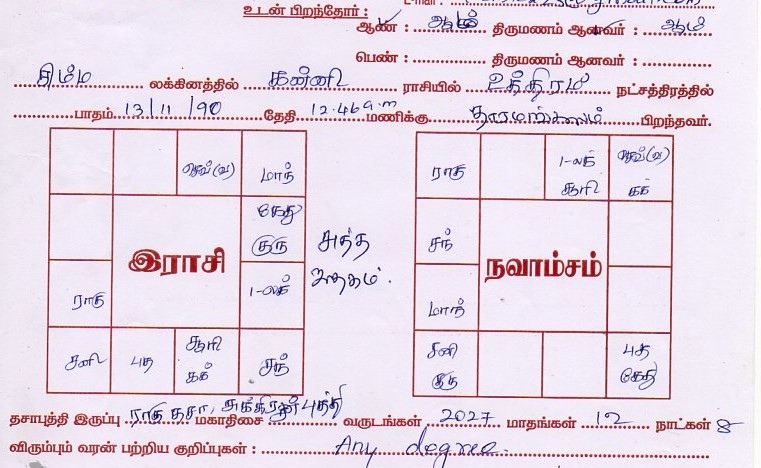 உடன் பிறந்தோர் :
ஆண் : திருமணம் ஆனவர் :
பெண் : திருமணம் ஆனவர் :
சிம்ம லக்கினத்தில் கன்னி ராசியில் உத்திரம் நட்சத்திரத்தில்
பாதம் 13/11/90 தேதி 12.46 a.m மணிக்கு தாரமங்கலம் பிறந்தவர்.
செவ்(வ) மாந்
கேது குரு
இராசி
ராகு
ல
சனி புத சூரி சுக் சந்
சுத்த ஜாதகம்.
ராகு ல சூரி செவ்(வ) சுக்
சந்
நவாம்சம்
மாந்
சனி குரு புத கேது
தசாபுத்தி இருப்பு ராகு தசா, சுக்கிரன் புத்தி மகாதிசை வருடங்கள் 2027 மாதங்கள் 12 நாட்கள் 8
விரும்பும் வரன் பற்றிய குறிப்புகள் : Any degree.